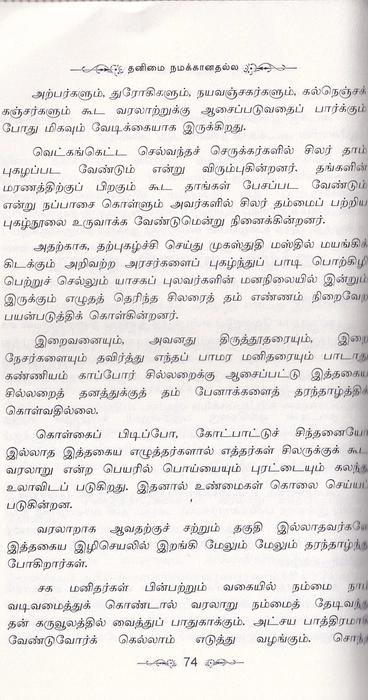 தனிமை நமக்கானதல்ல
அற்பர்களும், துரோகிகளும், நயவஞ்சகர்களும், கல்நெஞ்சக்
கஞ்சர்களும் கூட வரலாற்றுக்கு ஆசைப்படுவதைப் பார்க்கும்
போது மிகவும் வேடிக்கையாக இருக்கிறது.
வெட்கங்கெட்ட செல்வந்தச் செருக்கர்களில் சிலர் தாம்
புகழப்பட வேண்டும் என்று விரும்புகின்றனர். தங்களின்
மரணத்திற்குப் பிறகும் கூட தாங்கள் பேசப்பட வேண்டும்
என்று நப்பாசை கொள்ளும் அவர்களில் சிலர் தம்மைப் பற்றிய
புகழ்நூலை உருவாக்க வேண்டுமென்று நினைக்கின்றனர்.
அதற்காக, தற்புகழ்ச்சி செய்து முகஸ்துதி மஸ்தில் மயங்கிக்
கிடக்கும் அறிவற்ற அரசர்களைப் புகழ்ந்துப் பாடி பொற்கிழி
பெற்றுச் செல்லும் யாசகப் புலவர்களின் மனநிலையில் இன்றும்
இருக்கும் எழுதத் தெரிந்த சிலரைத் தம் எண்ணம் நிறைவேற
பயன்படுத்திக் கொள்கின்றனர்.
இறைவனையும், அவனது திருத்தூதரையும், இறை
நேசர்களையும் தவிர்த்து எந்தப் பாமர மனிதரையும் பாடாது
கண்ணியம் காப்போர் சில்லறைக்கு ஆசைப்பட்டு இத்தகைய
சில்லறைத் தனத்துக்குத் தம் பேனாக்களைத் தரந்தாழ்த்திக்
கொள்வதில்லை.
கொள்கைப் பிடிப்போ, கோட்பாட்டுச் சிந்தனையோ
இல்லாத இத்தகைய எழுத்தர்களால் எத்தர்கள் சிலருக்குக் கூட
வரலாறு என்ற பெயரில் பொய்யையும் புரட்டையும் கலந்து
உலாவிடப் படுகிறது. இதனால் உண்மைகள் கொலை செய்யப்
படுகின்றன.
வரலாறாக ஆவதற்குச் சற்றும் தகுதி இல்லாதவர்களே
இத்தகைய இழிசெயலில் இறங்கி மேலும் மேலும் தரந்தாழ்ந்து
போகிறார்கள்.
சக மனிதர்கள் பின்பற்றும் வகையில் நம்மை நாம்
வடிவமைத்துக் கொண்டால் வரலாறு நம்மைத் தேடிவந்து
தன் கருவூலத்தில் வைத்துப் பாதுகாக்கும். அட்சய பாத்திரமாய்
வேண்டுவோர்க் கெல்லாம் எடுத்து வழங்கும். சொந்த
74